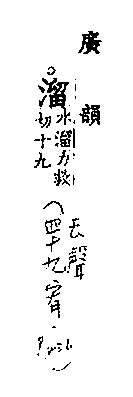 廣韻
溜
水溜力救
切十九
(去聲
四十九宥